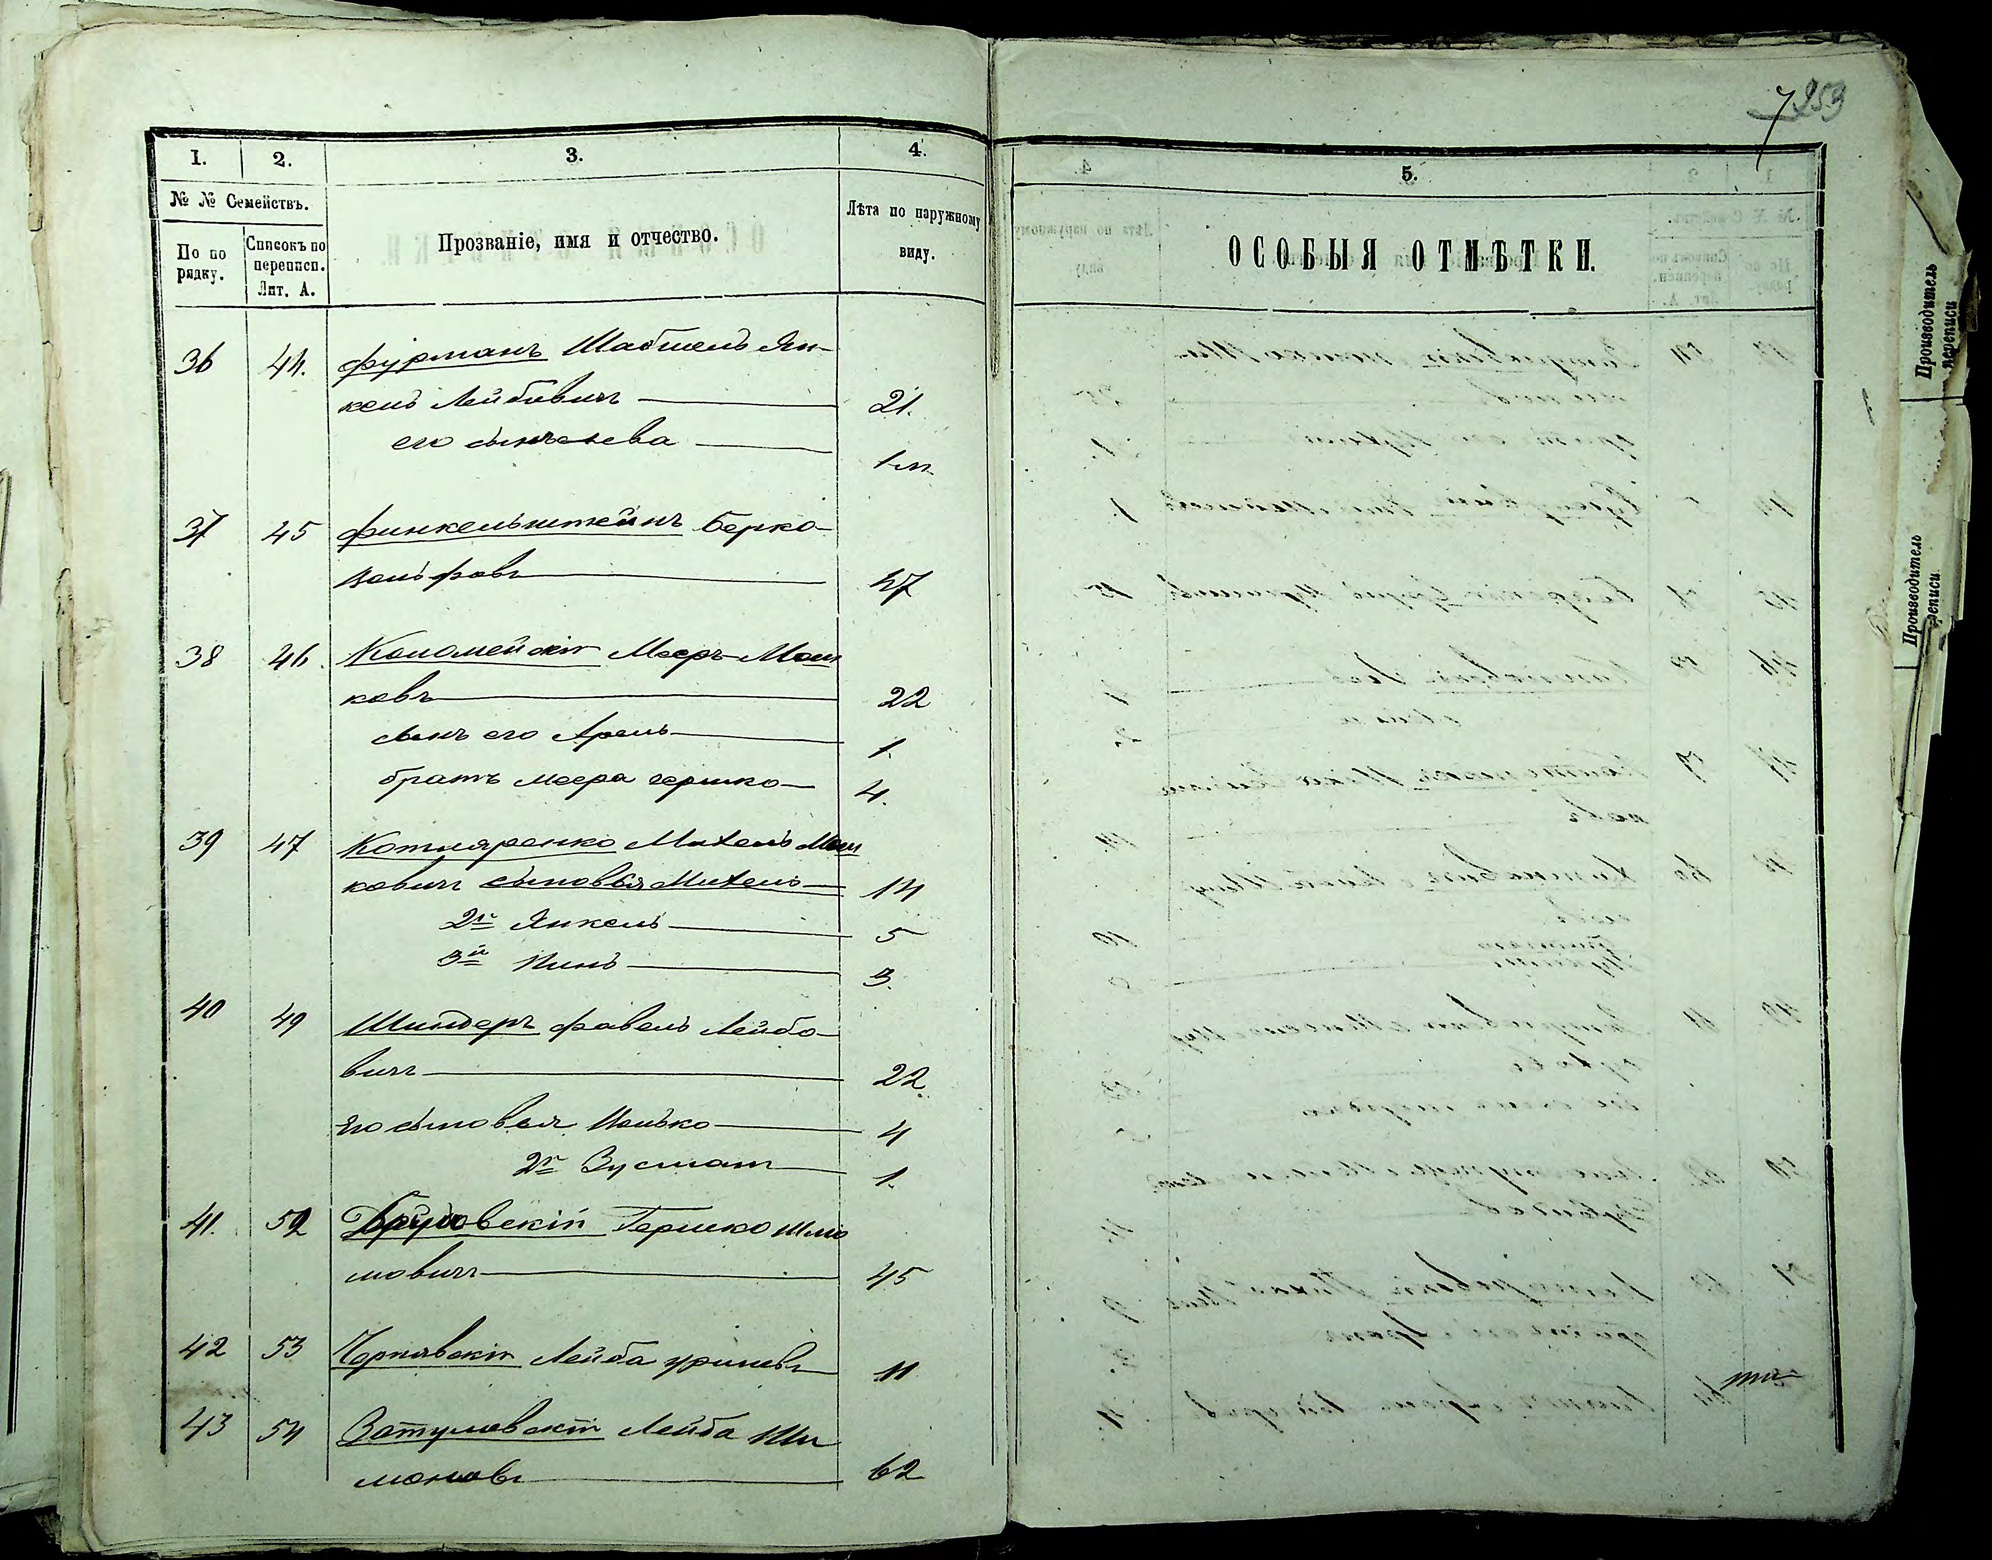 7 253
1. 2. 3. 4.
№ № Семействъ.
По по рядку.
Списокъ по переписи. Лит. А.
Прозваніе, имя и отчество.
Лѣта по наружному виду.
5.
ОСОБЫЯ ОТМѢТКИ.
36 44. Фурманъ Шабшель Ян-
кель Лейбовичъ 21.
его сынъ 1 м.
37 45 Финкельштейнъ Берко
Вольфовъ 47
38 46. Коломейскій Мееръ Мош
ковъ 22
сынъ его Арель 1.
братъ Меера Гершко 4.
39 47 Котляренко Михель Мош
ковичъ сыновья Михель 14
2й Янкель 5
3й Пинь 3.
40 49 Шиндеръ Фавель Лейбо-
вичъ 22.
его сыновья Ицько 4
2й Зусман 1.
41. 52 Гершко Шмо
мовичъ 45
42 53 Чернявскій Лейба 11
43 54 Затуловскій Лейба Ши
моновъ 62
Производитель переписи
Производитель переписи